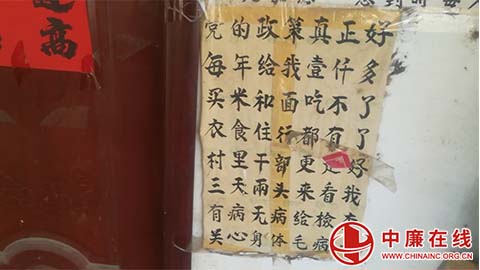 高
党的政策真正好
每年给我壹仟多
买米和面吃不了
衣食住行都有了
村里干部更是好
三天兩头来看我
有病无病给檢
关心身体毛病
中廉在线
WWW.CHINAINC.ORG.CN